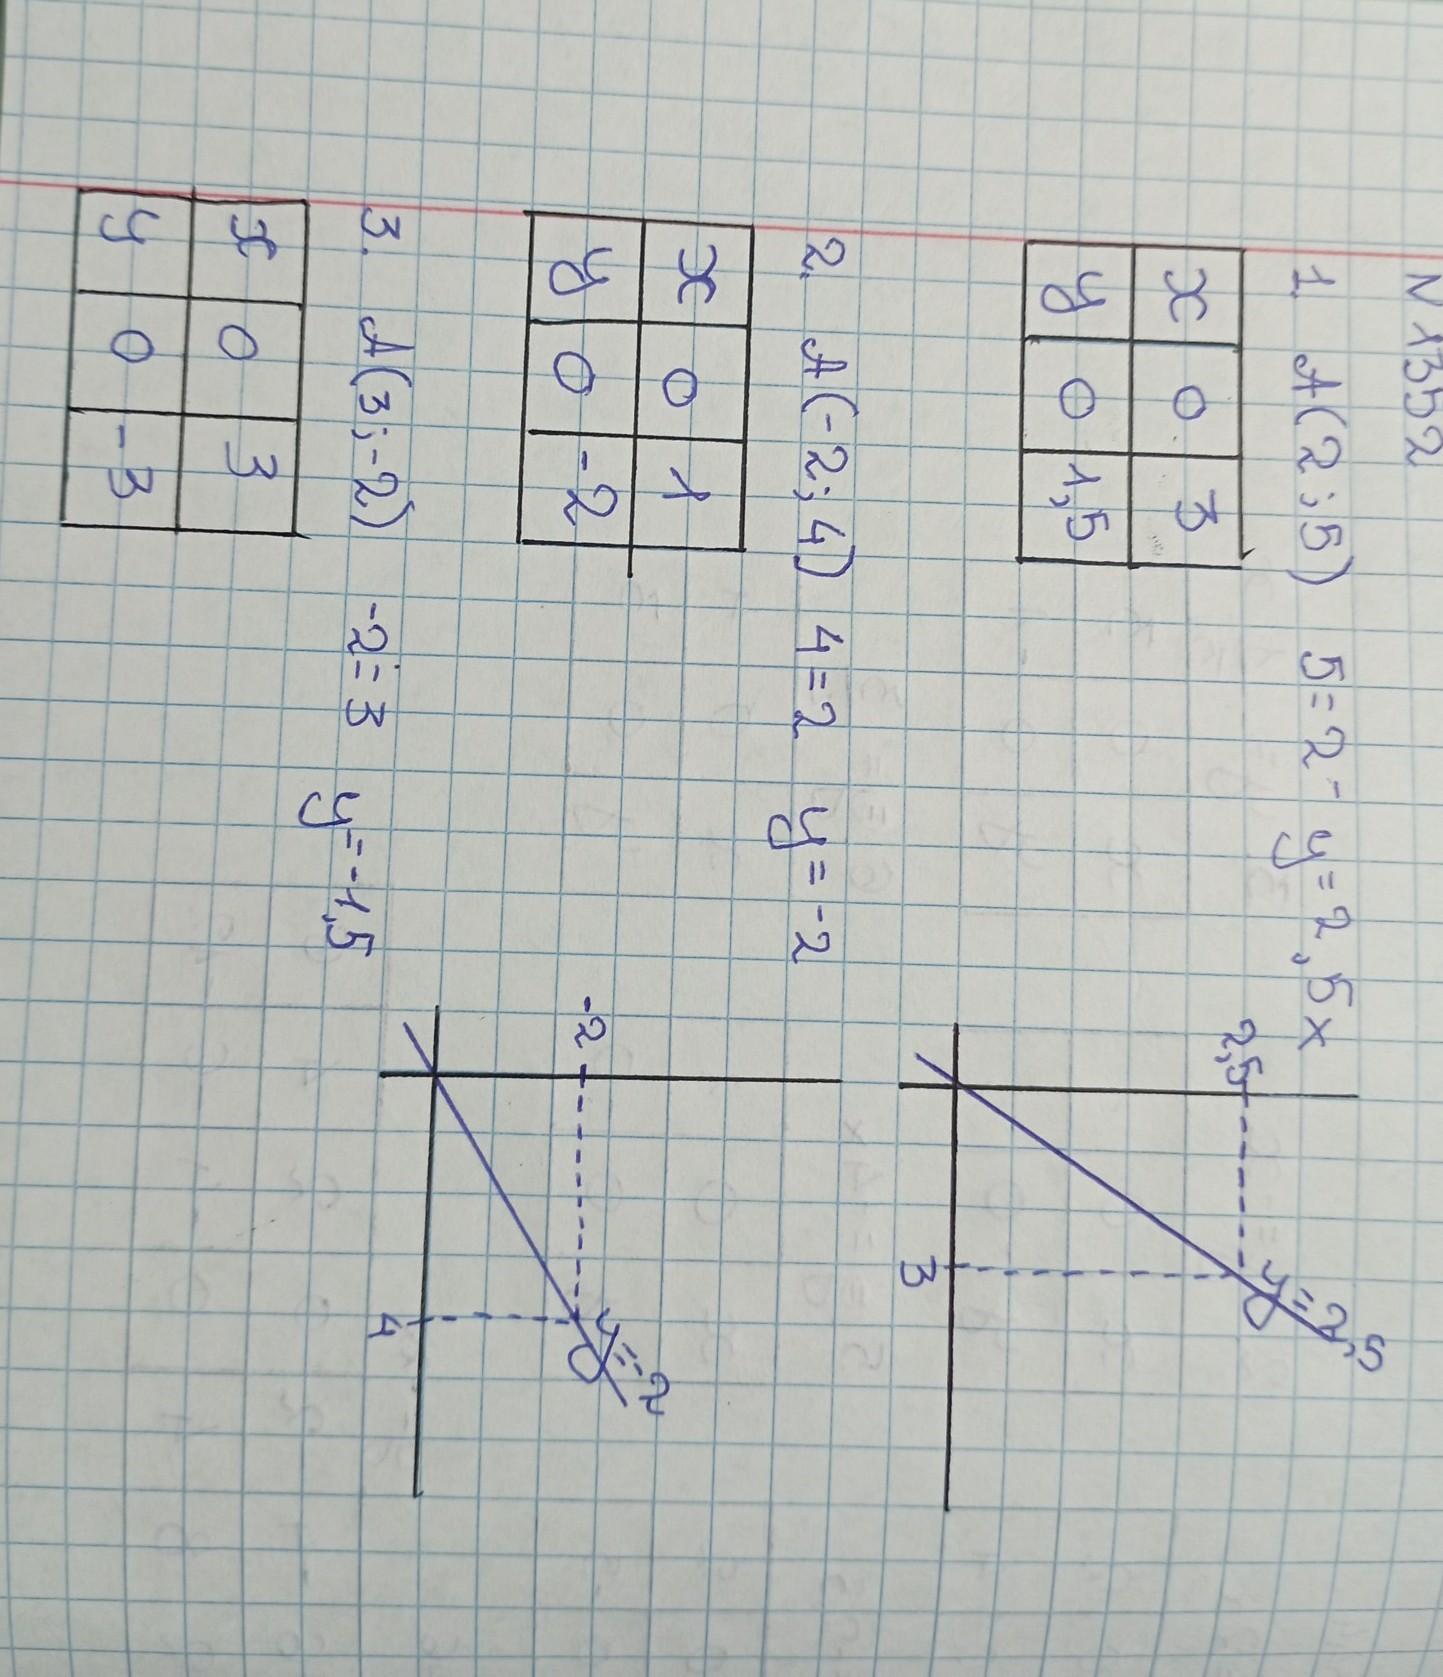 N 1352
1. A(2;5) 5=2- y=2,5x
x 0 3
y 0 1,5
2,5
3
y=2,5
2. A(-2;4) 4=2 y=-2
x 0 1
y 0 -2
-2
4
y=-2
3. A(3;-2) -2=3 y=-1,5
x 0 3
y 0 -3